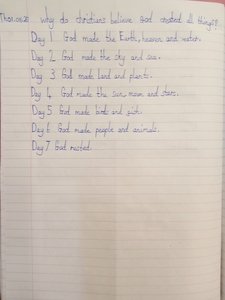 why do christians believe God created all things?
Day 1 God made the Earth, heaven and water.
Day 2 God made the sky and sea.
Day 3 God made land and plants.
Day 4 God made the sun, moon and stars.
Day 5 God made birds and fish.
Day 6 God made people and animals.
Day 7 God rested.